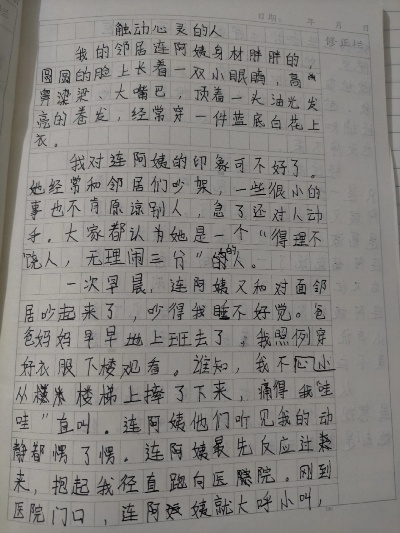 日期: 年 月 日
触动心灵的人
我的邻居连阿姨身材胖胖的，
圆圆的脸上长着一双小眼睛，高
鼻梁梁、大嘴巴，顶着一头油光发
亮的卷发，经常穿一件蓝底白花上
衣。
我对连阿姨的印象可不好了。
她经常和邻居们吵架，一些很小的
事也不肯原谅别人，急了还对人动
手。大家都认为她是一个“得理不
饶人，无理闹三分”的的人。
一次早晨，连阿姨又和对面邻
居吵起来了，吵得我睡不好觉。爸
爸妈妈早早地上班去了，我照例穿
好衣服下楼观看。谁知，我不心小
从楼梯上摔了下来，痛得我“哇
哇”直叫。连阿姨他们听见我的动
静都愣了愣。连阿姨最先反应过来
来，抱起我径直跑向医院。刚到
医院门口，连阿姨就大呼小叫，